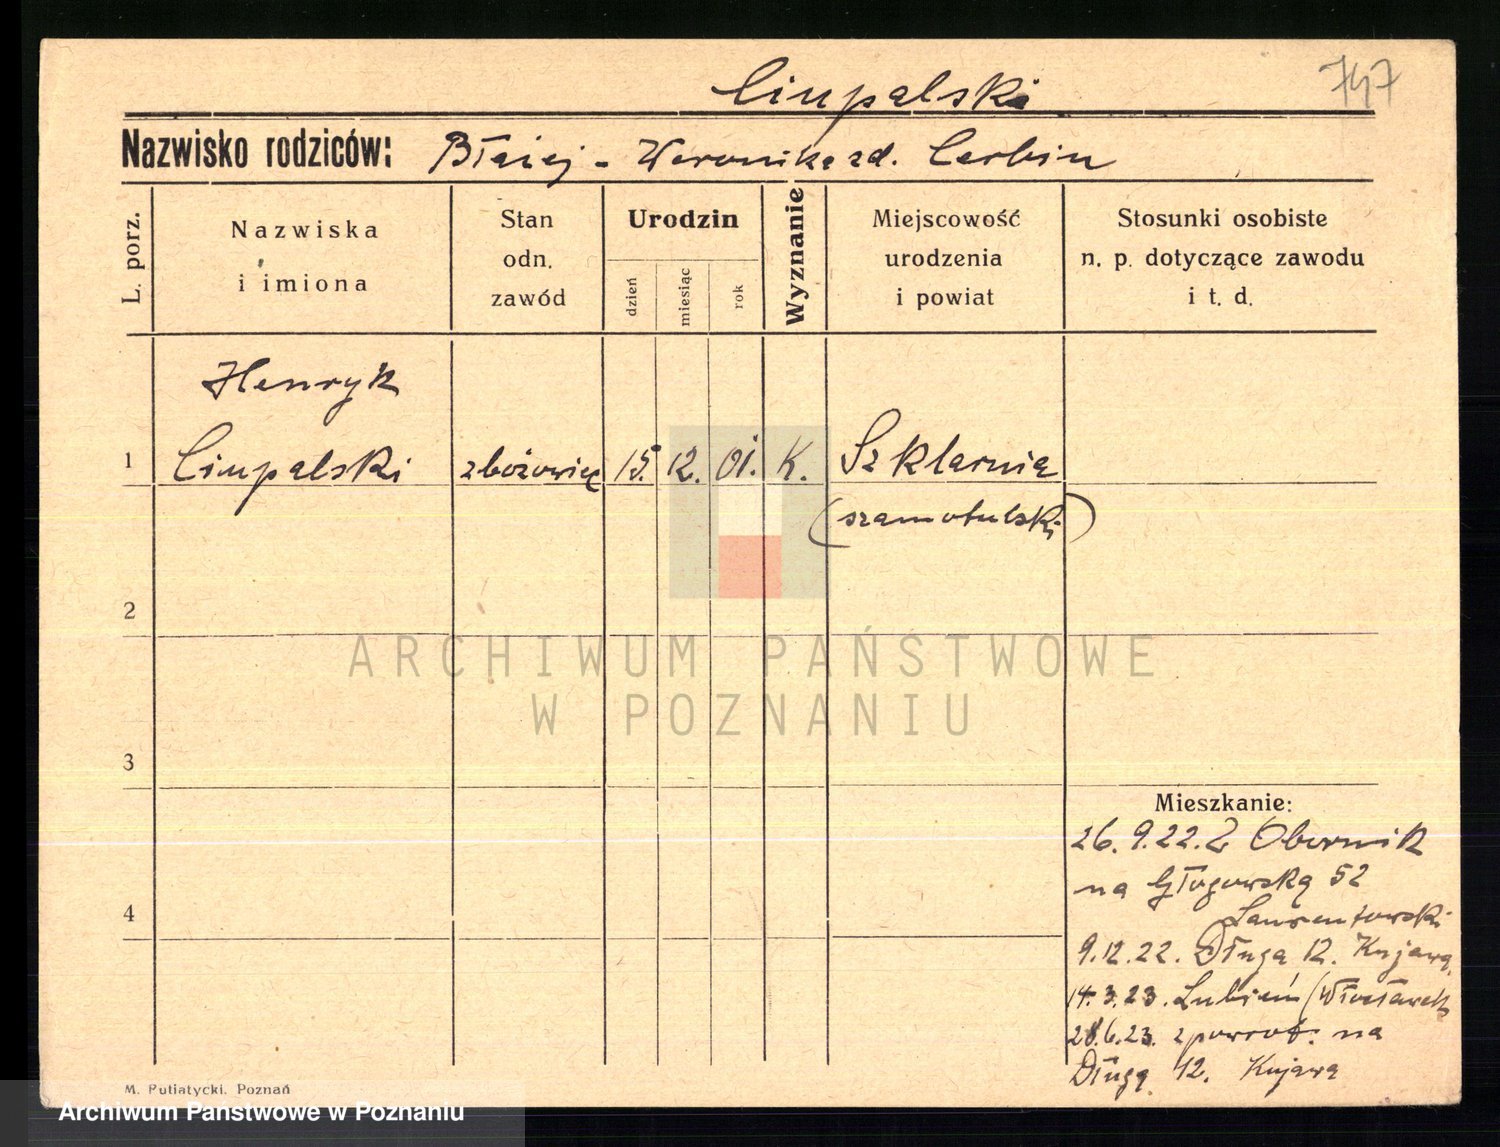 Ciupalski
747
Nazwisko rodziców: Błażej - Weronika zd. Cerbin
L. porz.
Nazwiska
i imiona
Stan
odn.
zawód
Urodzin
dzień
miesiąc
rok
Wyznanie
Miejscowość
urodzenia
i powiat
Stosunki osobiste
n. p. dotyczące zawodu
i t. d.
Henryk
1 Ciupalski zbożowiec 15. 12. 01. K. Szklarnia
(szamotulski)
2
ARCHIWUM PAŃSTWOWE
W POZNANIU
3
Mieszkanie:
26. 9. 22. Z Obornik
na Głogowską 52
4
9. 12. 22. Długa 12. Kujawa
14. 3. 23. Lubień (Włocławek
28. 6. 23. z powrot. na
Długą 12. Kujawa
M. Putiatycki. Poznań
Archiwum Państwowe w Poznaniu